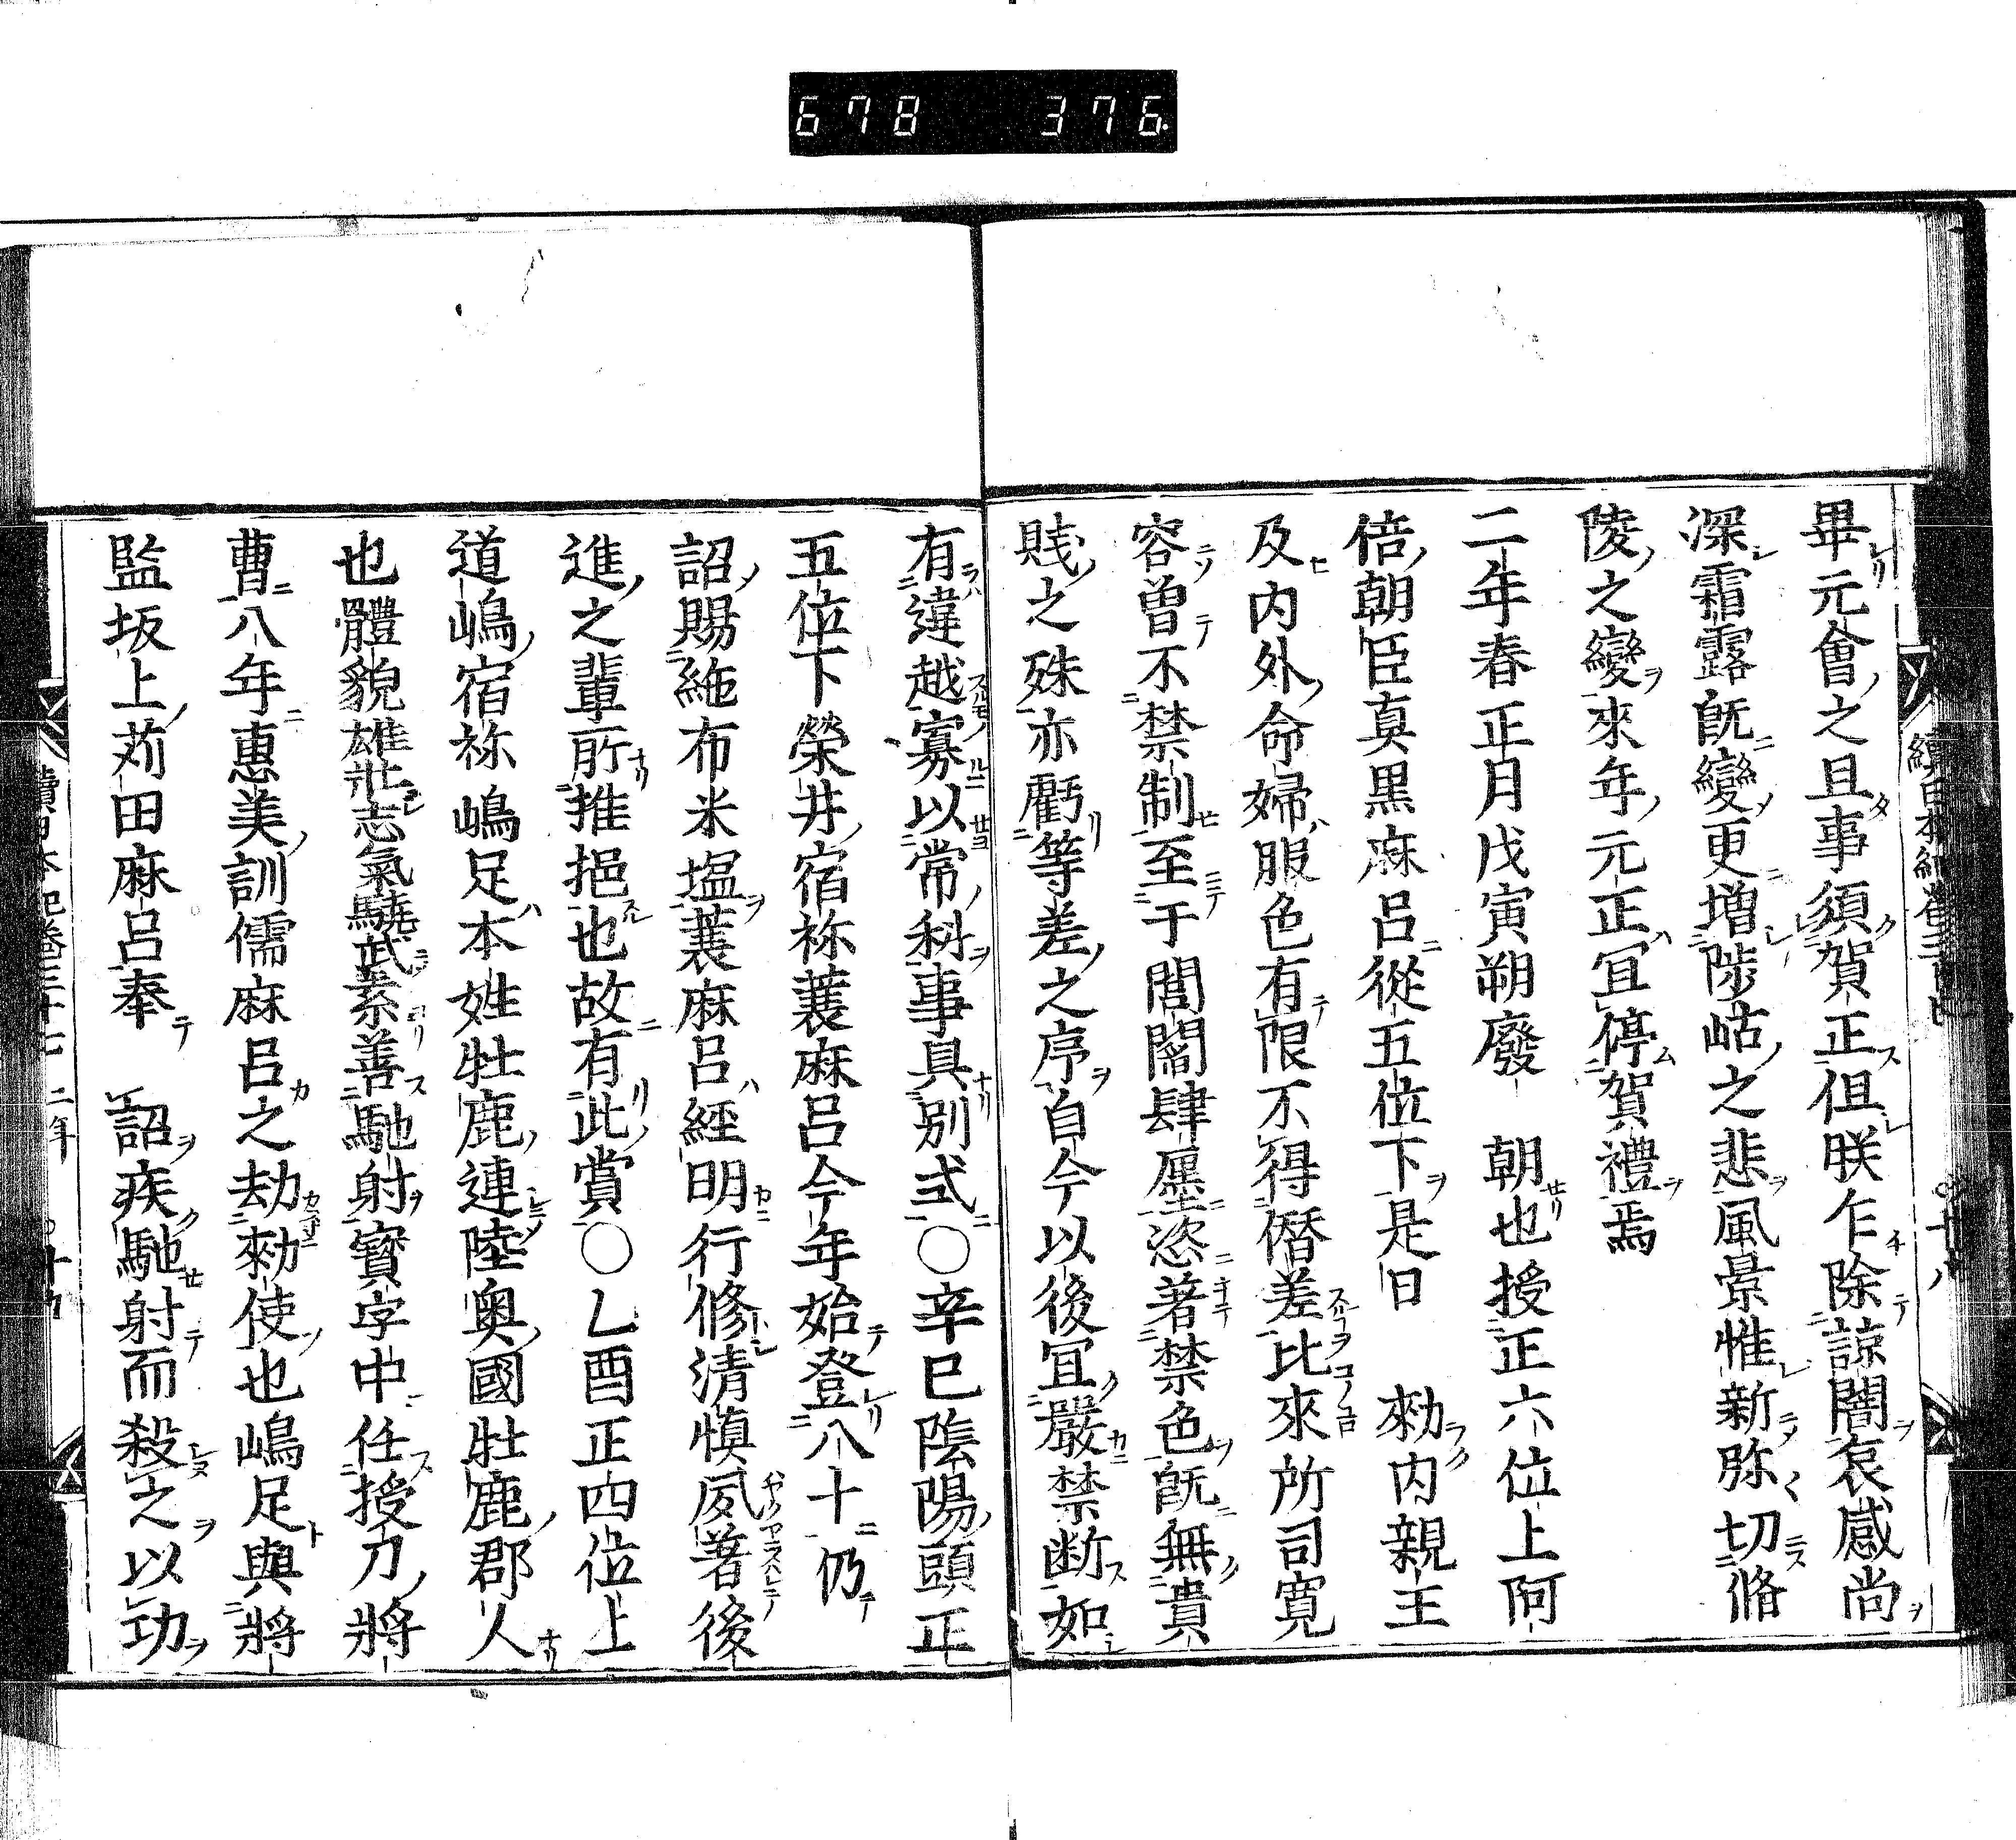 678 376
畢元會之旦事須賀正但朕乍除諒闇哀感尚
深霜露旣變更增陟岵之悲風景惟新弥切脩
陵之變來年元正冝停賀禮焉
二年春正月戊寅朔廢 朝也授正六位上阿
倍朝臣真黒麻呂從五位下是日 勑内親王
及内外命婦服色有限不得僭差比來所司寬
容曽不禁制至于閭閻肆廛恣著禁色旣無貴
賎之殊亦虧等差之序自今以後冝嚴禁断如
有違越寡以常科事具別式○辛巳隂陽頭正
五位下榮井宿祢蓑麻呂今年始登八十仍
詔賜絁布米塩蓑麻呂經明行修清愼夙著後
進之輩所推挹也故有此賞○乙酉正四位上
道嶋宿祢嶋足本姓牡鹿連陸奥國牡鹿郡人
也體貌雄壯志氣驍武素善馳射寳字中任授刀將
曹八年惠美訓儒麻呂之劫勑使也嶋足與將
監坂上苅田麻呂奉 詔疾馳射而殺之以功
續日本紀卷三十七 二年 ○十九